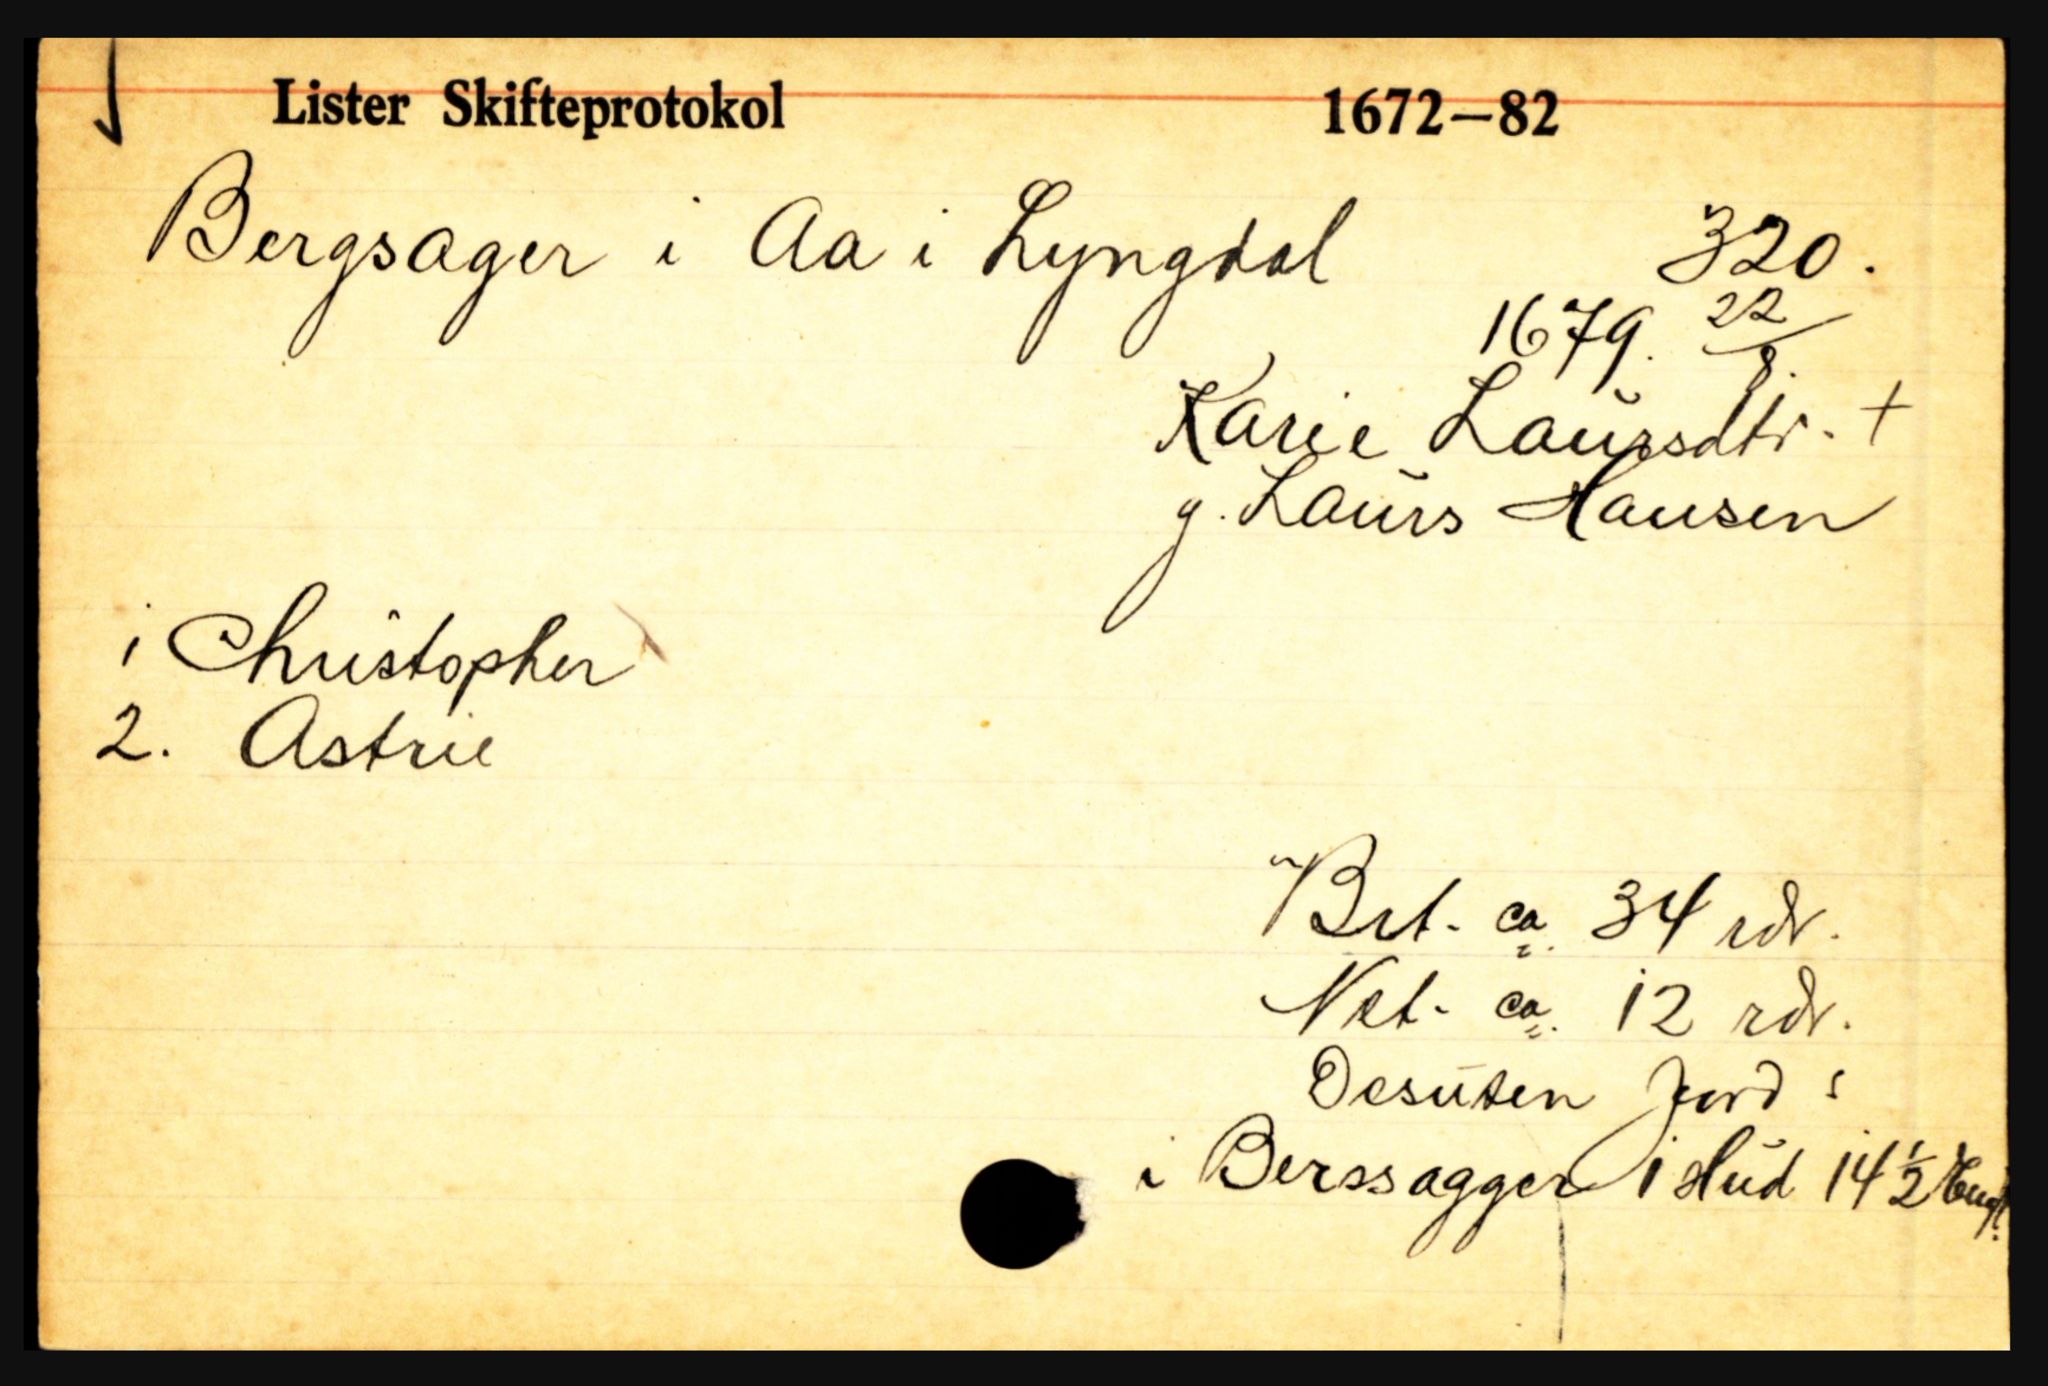 Lister Skifteprotokol 1672-82
Bergsager i Aa i Lyngdal 320.
1679. 22/8.
Karie Laursdtr. +
g. Laurs Hansen
1 Christopher
2. Astrie
Brt. ca. 34 rdr.
Net. ca. 12 rdr.
Desuten Jord :
i Berssagger 1 Hud 14 1/2 Eng.